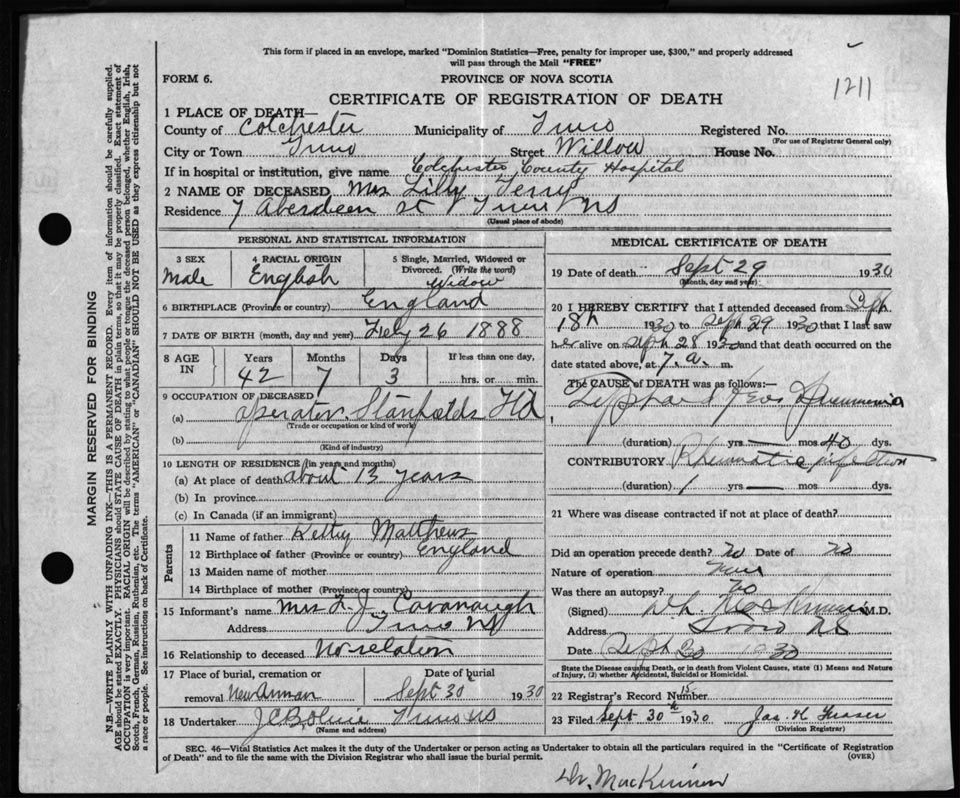 This form if placed in an envelope, marked "Dominion Statistics—Free, penalty for improper use, $300," and properly addressed
will pass through the Mail "FREE"
FORM 6.
PROVINCE OF NOVA SCOTIA
1211
CERTIFICATE OF REGISTRATION OF DEATH
1 PLACE OF DEATH—
County of Colchester Municipality of Truro Registered No.
(For use of Registrar General only)
City or Town Truro Street Willow House No.
If in hospital or institution, give name Colchester County Hospital
2 NAME OF DECEASED Mrs Lilly Terry
Residence 7 Aberdeen St Truro NS
(Usual place of abode)
PERSONAL AND STATISTICAL INFORMATION
3 SEX
Male
4 RACIAL ORIGIN
English
5 Single, Married, Widowed or
Divorced. (Write the word)
Widow
6 BIRTHPLACE (Province or country) England
7 DATE OF BIRTH (month, day and year) Feby 26 1888
8 AGE IN
Years Months Days If less than one day,
42 7 3 hrs. or min.
9 OCCUPATION OF DECEASED
(a) operator Stanfields Ltd
(Trade or occupation or kind of work)
(b)
(Kind of industry)
10 LENGTH OF RESIDENCE (in years and months)
(a) At place of death about 13 years
(b) In province
(c) In Canada (if an immigrant)
Parents
11 Name of father Matthews
12 Birthplace of father (Province or country) England
13 Maiden name of mother
14 Birthplace of mother (Province or country)
15 Informant's name Mrs L. J. Cavanaugh
Address Truro NS
16 Relationship to deceased No relation
17 Place of burial, cremation or
removal Sept 30 1930
Date of burial
18 Undertaker Truro NS
(Name and address)
MEDICAL CERTIFICATE OF DEATH
19 Date of death Sept 29 1930
(Month, day and year)
20 I HEREBY CERTIFY that I attended deceased from Sept.
18th 1930 to Sept 29 1930 that I last saw
her alive on Sept 28 1930 and that death occurred on the
date stated above, at 7. a. m.
The CAUSE OF DEATH was as follows:
Pneumonia
(duration) yrs mos 40 dys.
CONTRIBUTORY Rheumatic infection
(duration) 1 yrs mos dys.
21 Where was disease contracted if not at place of death?
Did an operation precede death? no Date of no
Nature of operation
Was there an autopsy? no
(Signed) M.D.
Address Truro NS
Date Sept 30 1930
State the Disease causing Death, or in death from Violent Causes, state (1) Means and Nature
of Injury, (2) whether Accidental, Suicidal or Homicidal.
22 Registrar's Record Number 15
23 Filed Sept 30th 1930 Jas. H Fraser
(Division Registrar)
SEC. 46—Vital Statistics Act makes it the duty of the Undertaker or person acting as Undertaker to obtain all the particulars required in the "Certificate of Registration
of Death" and to file the same with the Division Registrar who shall issue the burial permit.
(OVER)
Dr. MacKinnon
MARGIN RESERVED FOR BINDING
N.B.—WRITE PLAINLY WITH UNFADING INK—THIS IS A PERMANENT RECORD. Every item of information should be carefully supplied.
AGE should be stated EXACTLY. PHYSICIANS should STATE CAUSE OF DEATH in plain terms, so that it may be properly classified. Exact statement of
OCCUPATION is very important. RACIAL ORIGIN will be described by stating to what people or tongue the deceased person belonged, whether English, Irish,
Scotch, French, German, Russian, Ruthenian, etc. The terms "AMERICAN" or "CANADIAN" SHOULD NOT BE USED as they express citizenship but not
a race or people. See instructions on back of Certificate.